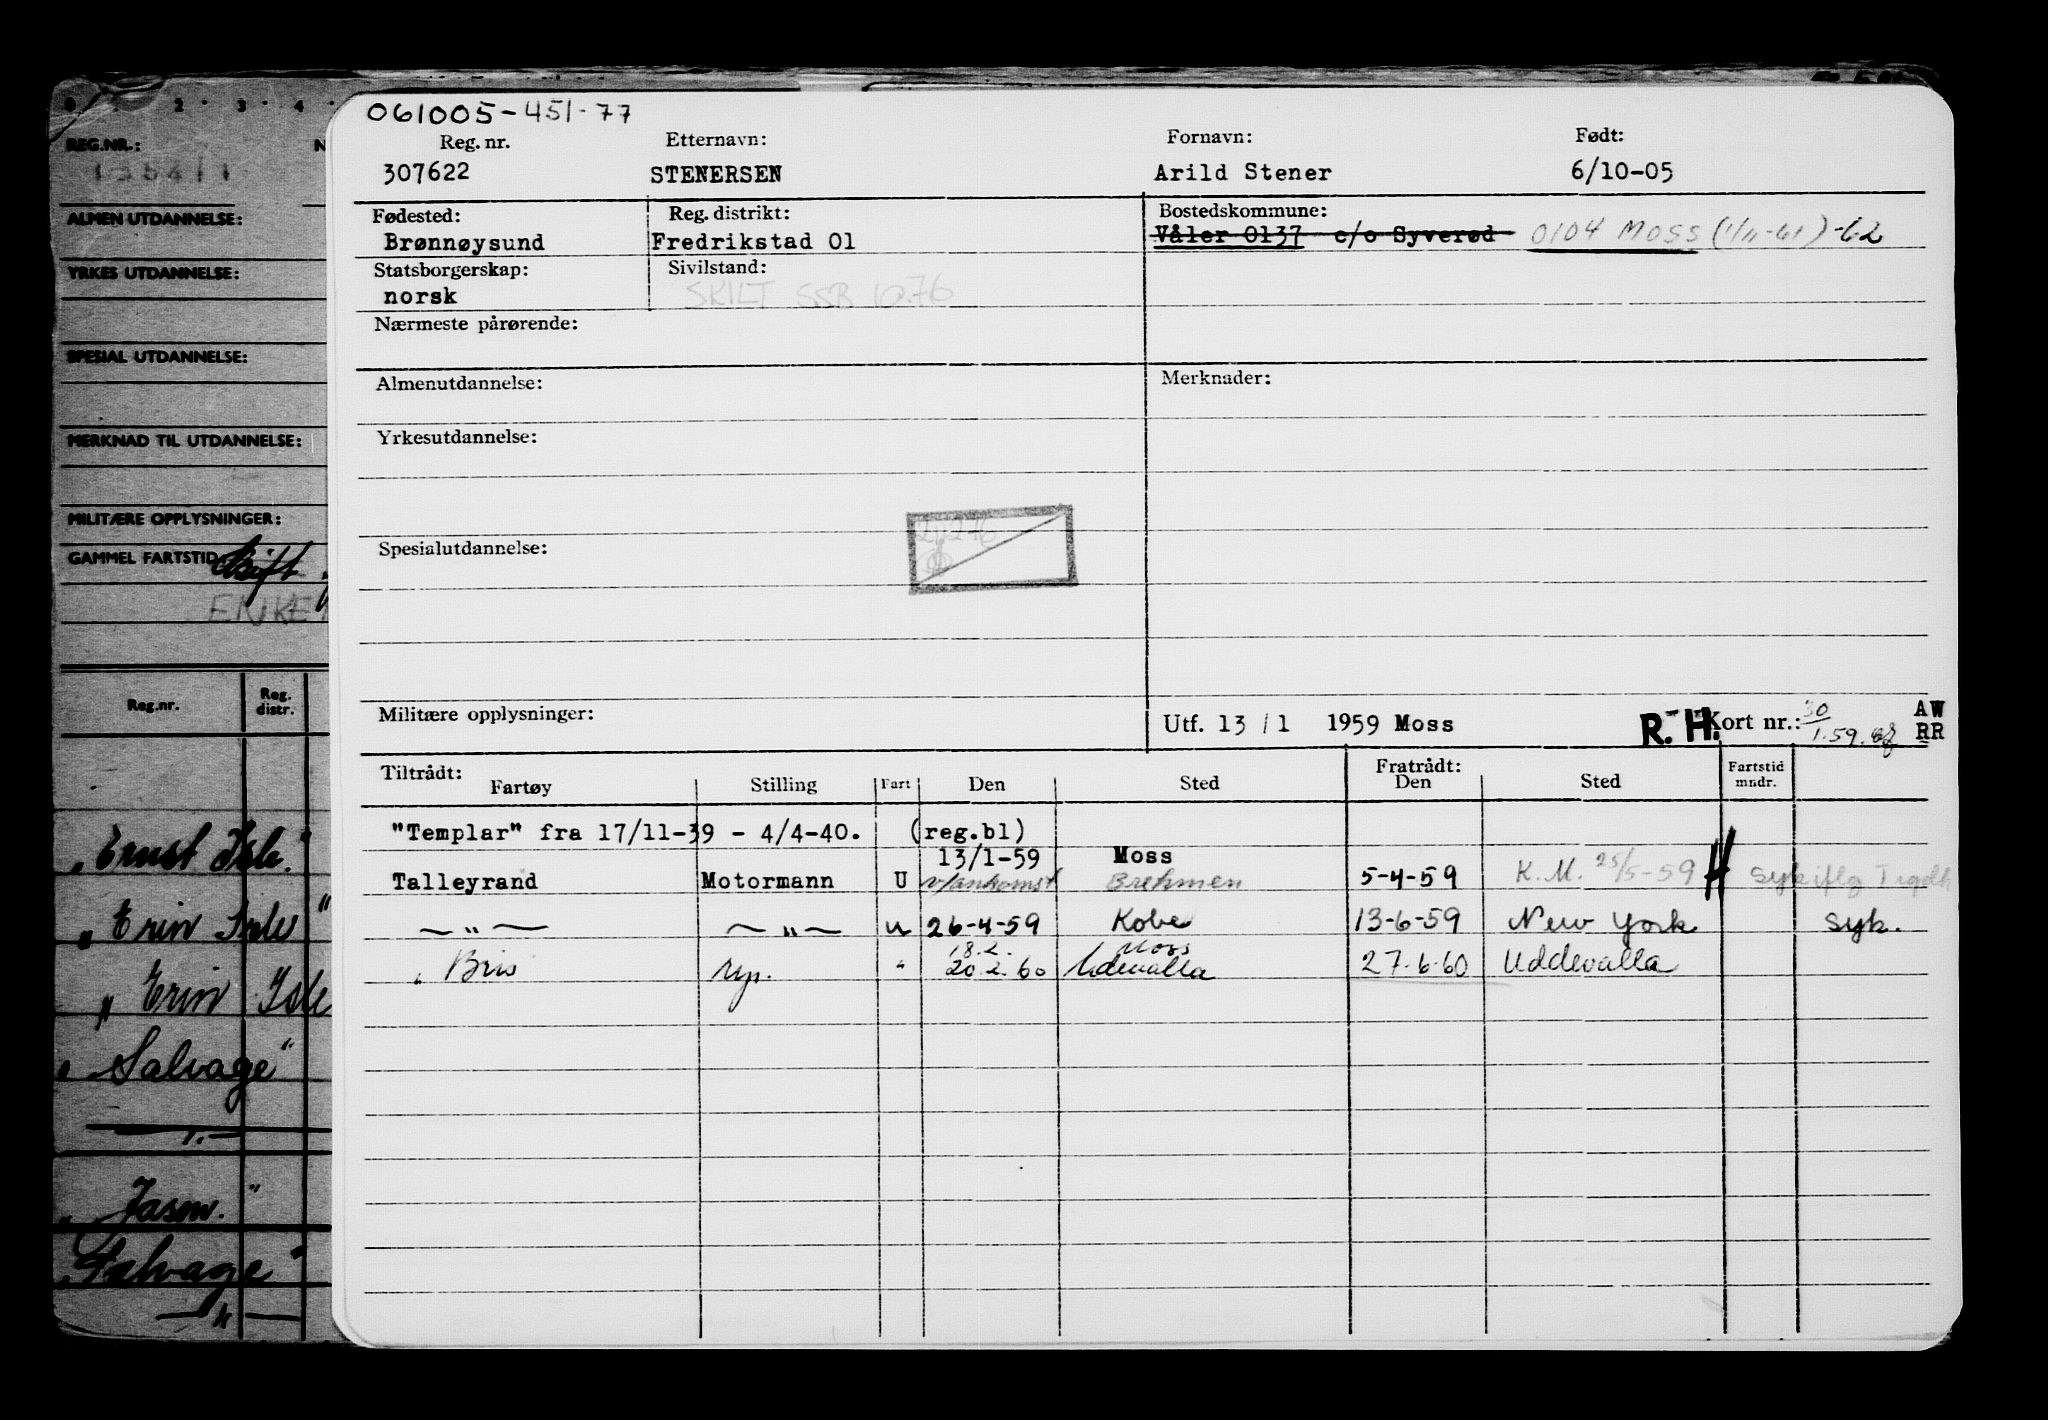 REG.NR.:
ALMEN UTDANNELSE:
YRKES UTDANNELSE:
SPESIAL UTDANNELSE:
MERKNAD TIL UTDANNELSE:
MILITÆRE OPPLYSNINGER:
GAMMEL FARTSTID
Reg.nr. Reg. distr.
"Erin Isle"
"Erin Isle
"Salvage"
"Jason."
"Salvage"
061005-451-77
Reg. nr. Etternavn: Fornavn: Født:
307622 STENERSEN Arild Stener 6/10-05
Fødested: Reg. distrikt: Bostedskommune:
Brønnøysund Fredrikstad 01 Våler 0137 c/o Syverød 0104 MOSS (1/11-61)-62
Statsborgerskap: Sivilstand:
norsk SKILT SSB 10.76
Nærmeste pårørende:
Almenutdannelse: Merknader:
Yrkesutdannelse:
Spesialutdannelse:
Militære opplysninger: Utf. 13/1 1959 Moss R. H. Kort nr.: 30/1.59. AW
RR
Tiltrådt: Fratrådt: Fartstid
Fartøy Stilling Fart Den Sted Den Sted mndr.
"Templar" fra 17/11-39 - 4/4-40. (reg.bl)
13/1-59 Moss
Talleyrand Motormann U v/ankomst Brehmen 5-4-59 K.M. 25/5-59 H syk iflg
— " — — " — u 26-4-59 Kobe 13-6-59 New York syk.
18.2. Moss
" Bris rep. " 20.2.60 Udevalla 27.6.60 Uddevalla